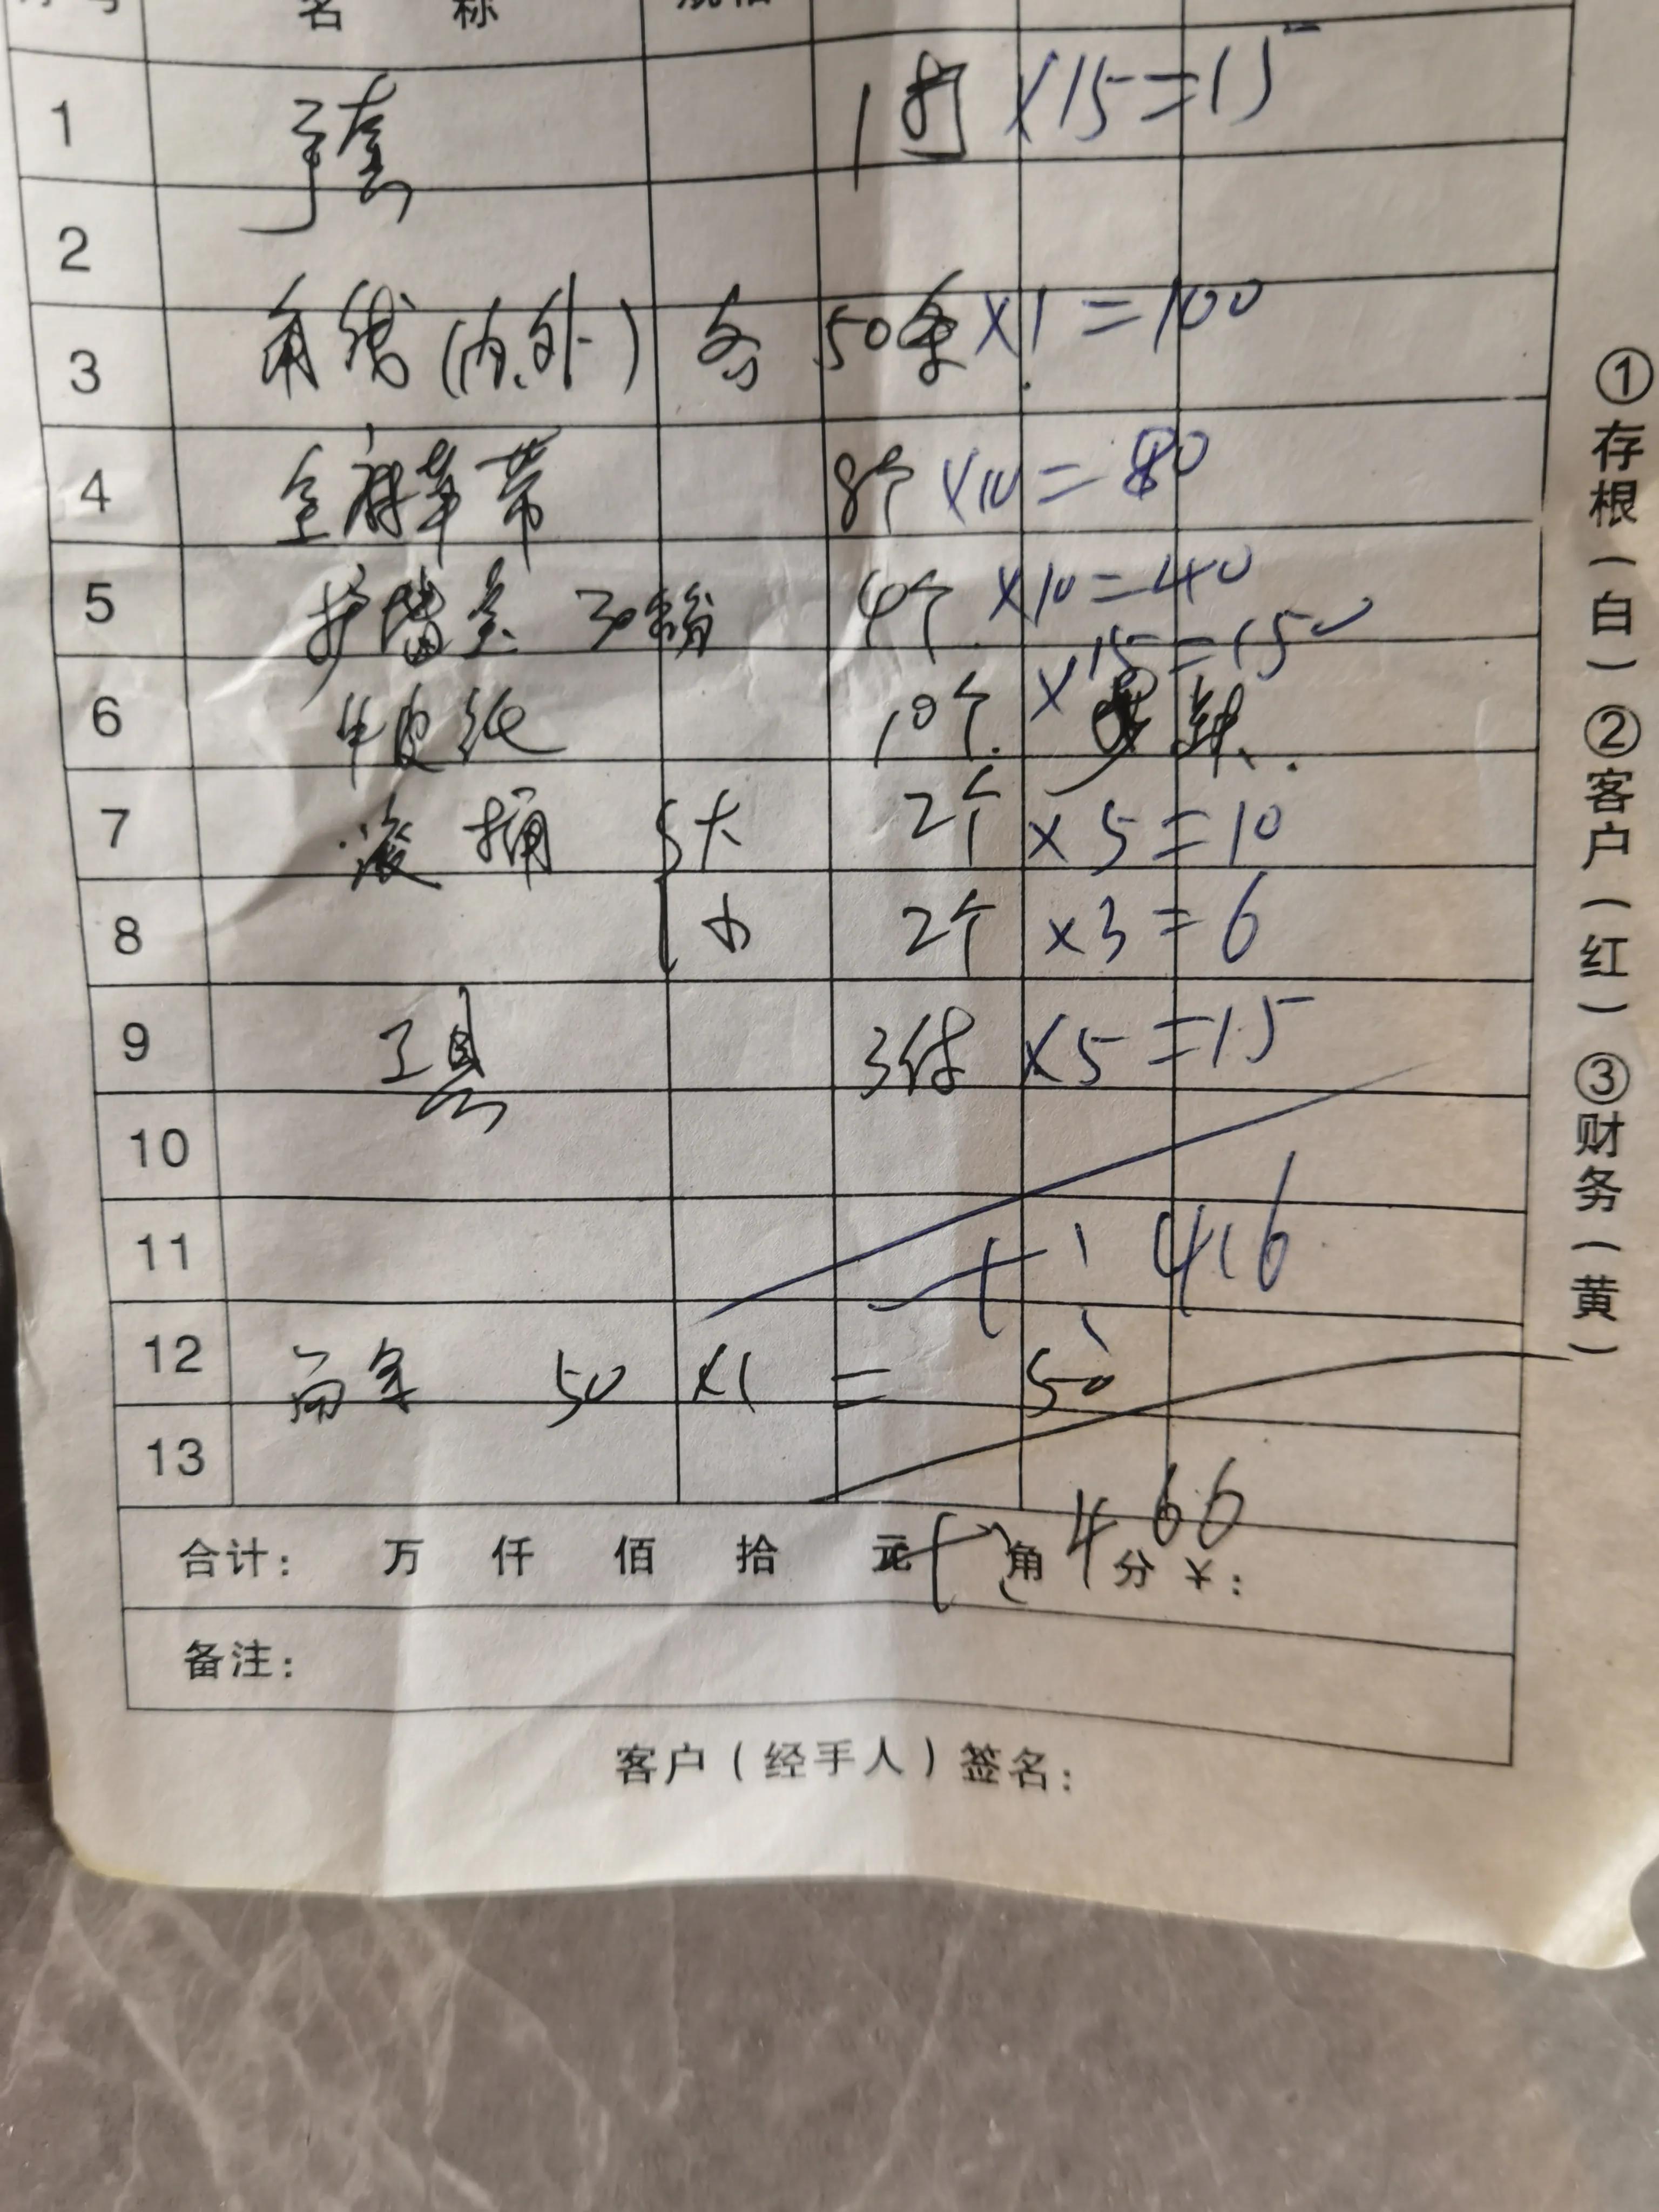 名 称
1 手套 1打 ×15=15
2
3 角线(内.外) 各 50条 ×1=100
4 8个 ×10=80
5 护墙 4个 ×10=40
6 牛皮纸 10个 ×15=150
7 滚桶 大 2个 ×5=10
8 小 2个 ×3=6
9 工具 3件 ×5=15
10
11 416
12 50 ×1 = 50
13
466
合计: 万 仟 佰 拾 元 角 分 ¥:
备注:
客户(经手人)签名:
①存根(白)②客户(红)③财务(黄)